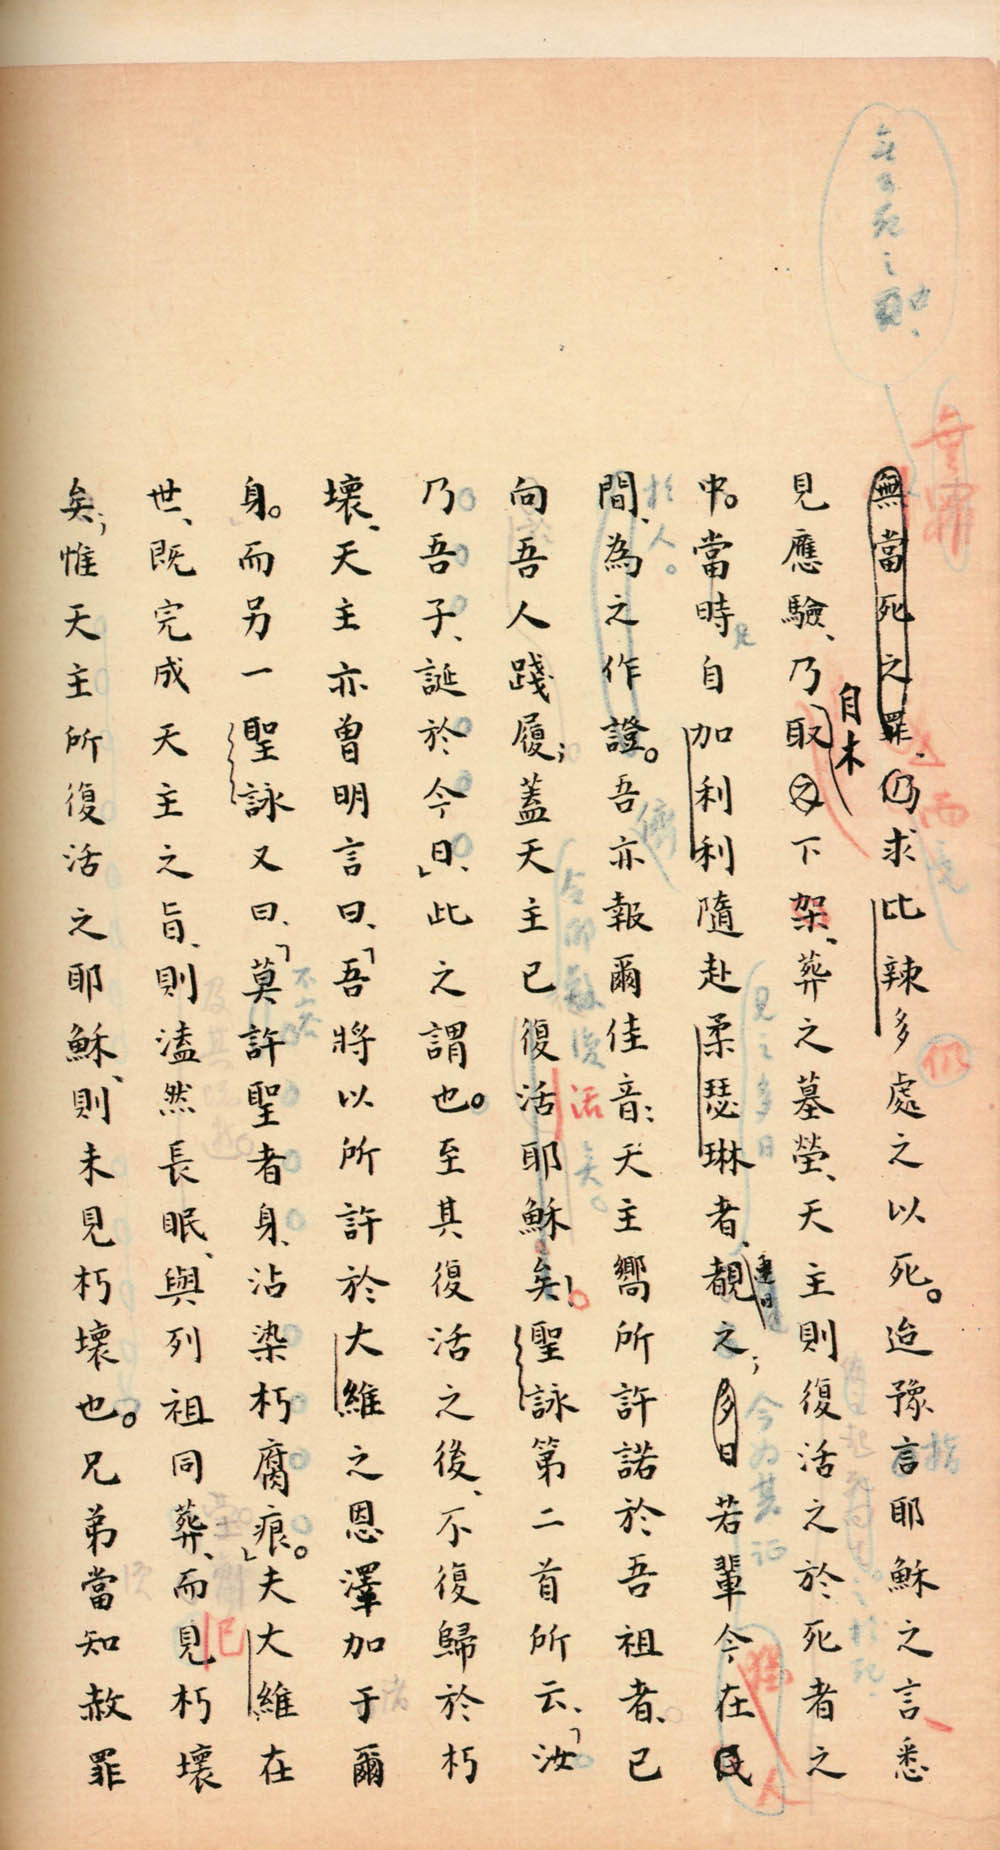 無當死之罪、仍求比辣多處之以死。迨豫言耶穌之言悉
見應驗、乃取之下架、葬之墓塋、天主則復活之於死者之
自木
中。當時自加利利隨赴柔瑟琳者、覩之；多日若輩今在民
連日
間、為之作證。吾亦報爾佳音：天主嚮所許諾於吾祖者、已
向吾人踐履；蓋天主已復活耶穌矣。聖詠第二首所云、「汝
乃吾子、誕於今日」、此之謂也。至其復活之後、不復歸於朽
壞、天主亦曾明言曰、「吾將以所許於大維之恩澤加于爾
身。而另一聖詠又曰、「莫許聖者身、沾染朽腐痕」。夫大維在
世、既完成天主之旨、則溘然長眠、與列祖同葬、而見朽壞
矣；惟天主所復活之耶穌、則未見朽壞也。兄弟當知赦罪
無罪
而
仍
指
於人。
見之多日
今為其証
猶
人
活
矣。
不容
已